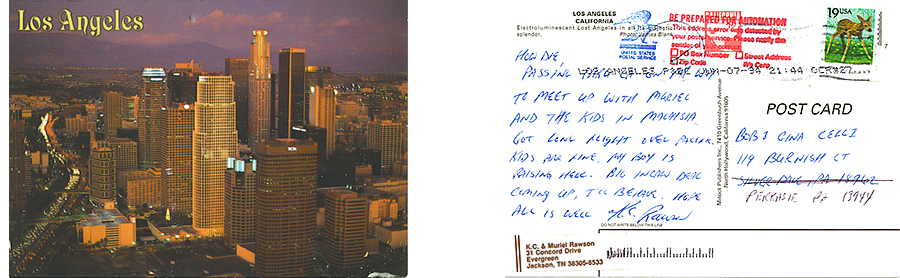 Los Angeles
LOS ANGELES
CALIFORNIA
Electroluminescent Lost Angeles in all its
splendor. Photo: James Blank
UNITED STATES
POSTAL SERVICE
BE PREPARED FOR AUTOMATION
This address error was detected by
your postal service. Please notify the
sender of your correct
PO Box Number
Street Address
Zip Code
We Care
19USA
21:44
HOWDIE,
PASSING THRU ON THE WAY
TO MEET UP WITH MURIEL
AND THE KIDS IN MALAYSIA.
GOT LONG FLIGHT OVER PACIFIC.
KIDS ARE FINE. MY BOY IS
RAISING HELL. BIG INDIAN DEAL
COMING UP, I'LL BEHAVE. HOPE
ALL IS WELL K.C. Rawson
DO NOT WRITE BELOW THIS LINE
K.C. & Muriel Rawson
31 Concord Drive
Evergreen
Jackson, TN 38305-8533
Mitock Publishers Inc., 7410 Greenbush Avenue
North Hollywood, California 91605
POST CARD
BOB & GINA CELLI
119 BURNISH CT
PERKASIE PA 18944